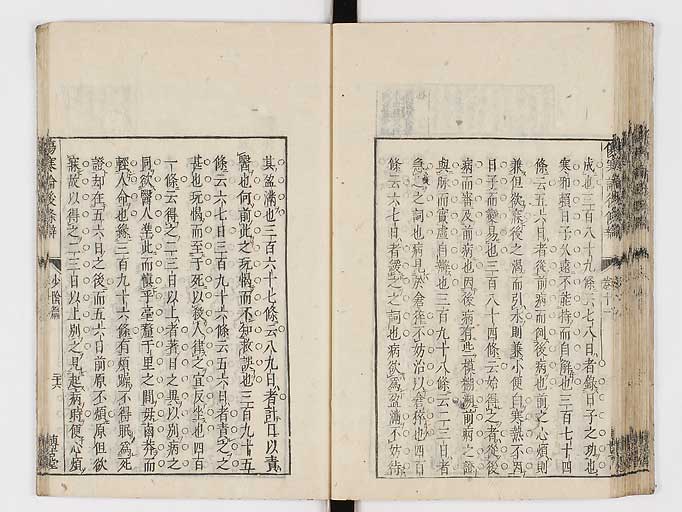 成也三百八十九條云七八日者錄日子之功也
寒邪賴日子久遠不能持而自解也三百七十四
條云五六日者從前病而例後病也前之心煩則
兼但欲寐後之渴而引水則兼小便白寒熱不因
日子而變易也三百八十四條云始得之者從後
病而審及前病也因後病有些模糊前病之證
與脉而實處自辨也三百九十八條云二三日者
急之之詞也病見於倉猝不妨治以倉猝也四百
條云六七日者緩之之詞也病欲爲盆滿不妨待
其盆滿也三百六十七條云八九日者計日以責
醫也何前此之玩愒而不知救誤也三百九十五
條云六七日三百九十六條云五六日者責之之
甚也玩愒而至于死以殺人律之宜反坐也四百
一條云得之二三日以上者著日之異以別病之
同欲醫人準此而愼乎毫釐千里之間毋鹵莽而
輕人命也緣三百九十六條有煩躁不得眠爲死
證却在五六日之後而五六日前原不煩原但欲
寐故以得之二三日以上別之見起病時便心煩
傷寒論後條辨
少陰篇